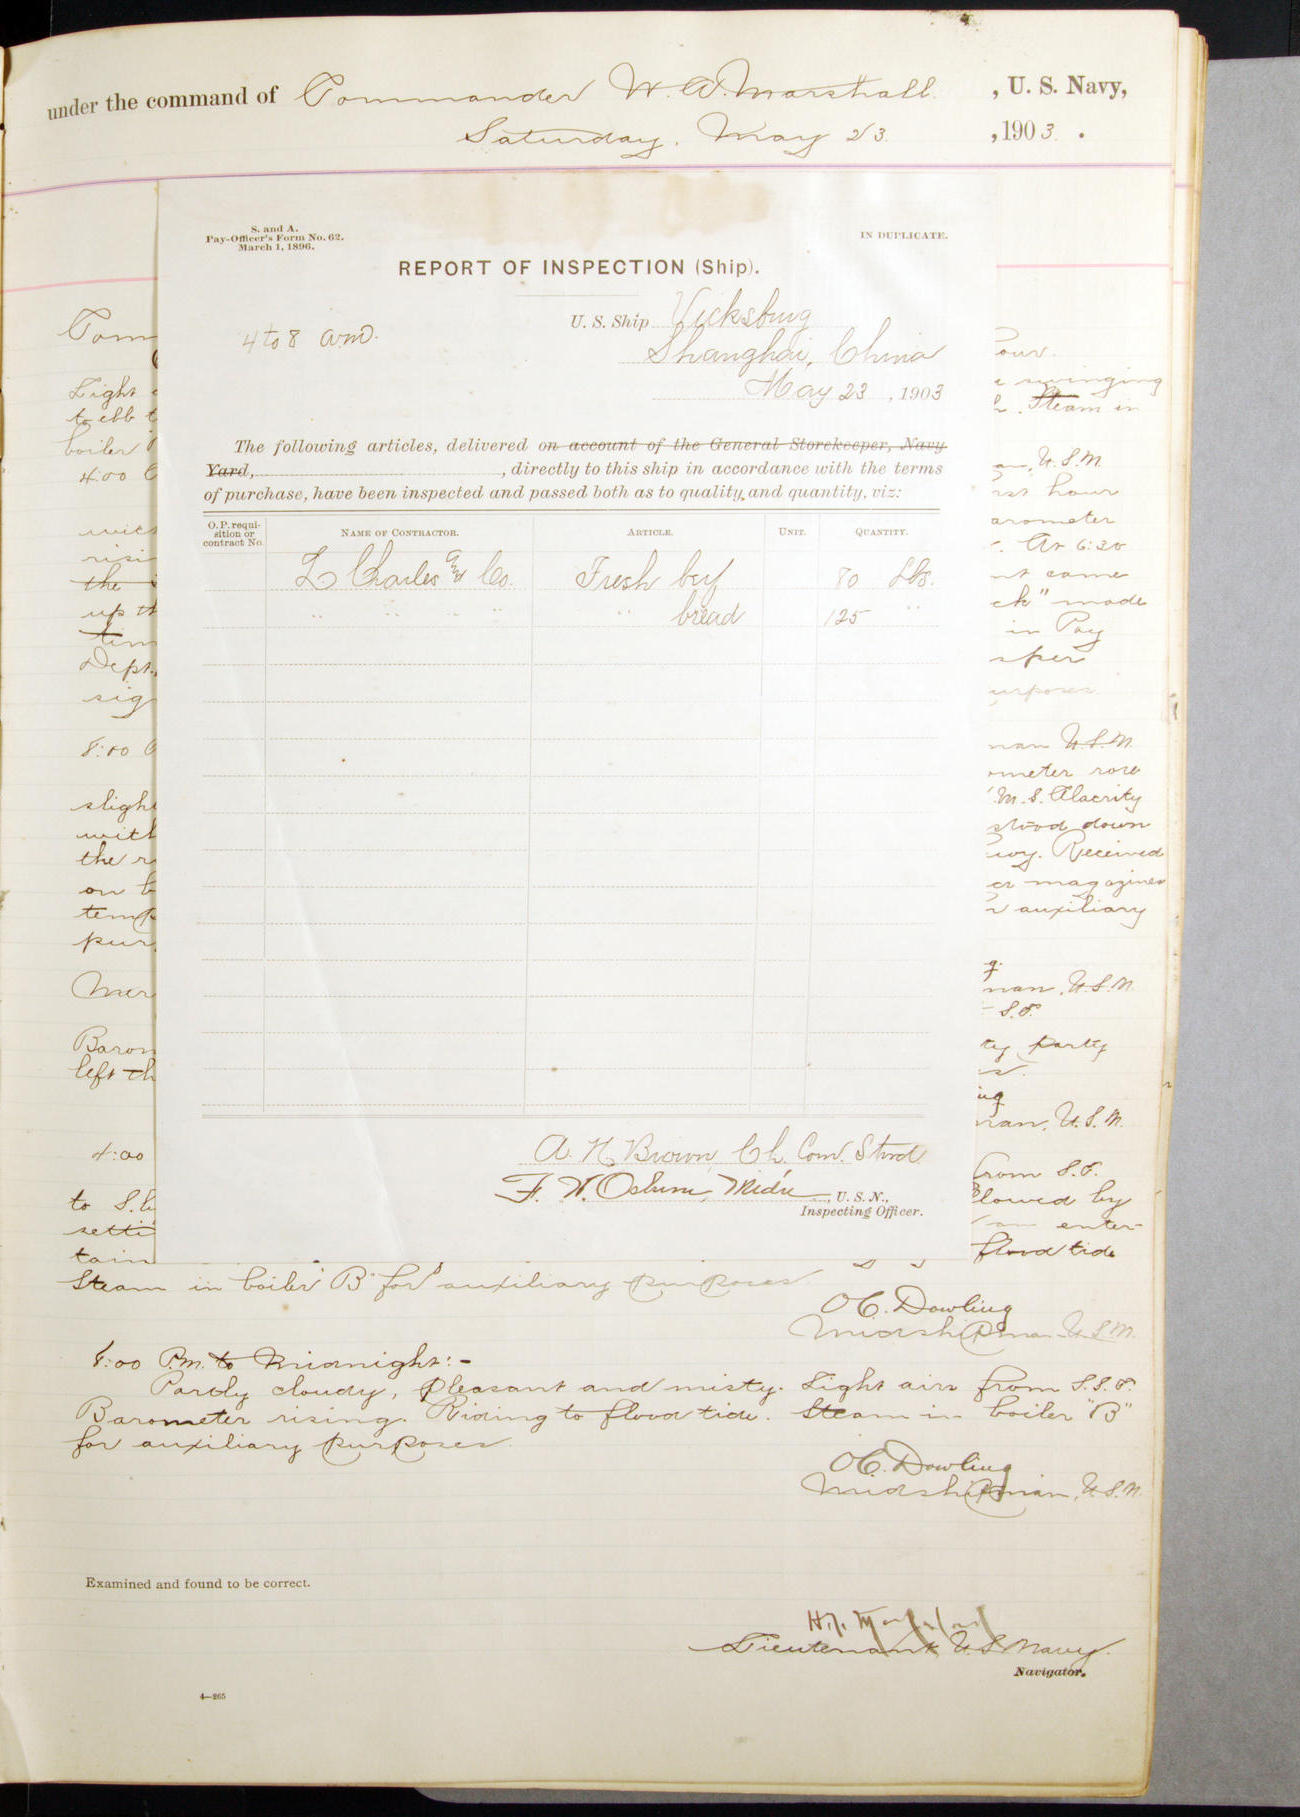 under the command of Commander W. A. Marshall, U. S. Navy,
Saturday, May 23, 1903.
S. and A.
Pay-Officer's Form No. 62.
March 1, 1896.
IN DUPLICATE.
REPORT OF INSPECTION (Ship).
U. S. Ship Vicksburg
4 to 8 a.m.
Shanghai, China
May 23, 1903
The following articles, delivered on account of the General Storekeeper, Navy
Yard, , directly to this ship in accordance with the terms
of purchase, have been inspected and passed both as to quality and quantity, viz:
O. P. requi-
sition or
contract No.
NAME OF CONTRACTOR. ARTICLE. UNIT. QUANTITY.
L Charles and Co. Fresh beef 80 Lbs.
" " " " " bread 125 "
A. N. Brown Ch. Com. Stwd
F. W. Osburn, Midn, U. S. N.,
Inspecting Officer.
Com
our.
Light
swinging
to ebb t
h. Steam in
boiler
4:00
U.S.N.
rst hour
arometer
risi
. At 6:30
the
nt came
up th
ck" made
tem
in Pay
Dept.
sper
sig
urposes
8:00
man U.S.N.
ometer rose
sligh
M. S. Alacrity
with
stood down
the r
Received
on b
er magazines
temp
r auxiliary
pur
Mer
man, U.S.N.
S.E.
Baron
ty party
left th
man, U.S.N.
4:00
from S.E.
to S.
llowed by
setti
enter-
tain
flood tide
Steam in boiler "B" for auxiliary purposes
O C. Dowling
Midshipman U.S.N.
8:00 P.m. to Midnight:-
Partly cloudy, pleasant and misty. Light airs from S.S.E.
Barometer rising. Riding to flood tide. Steam in boiler "B"
for auxiliary purposes
O C. Dowling
Midshipman, U.S.N.
Examined and found to be correct.
Lieutenant U.S. Navy.
Navigator.
4—265